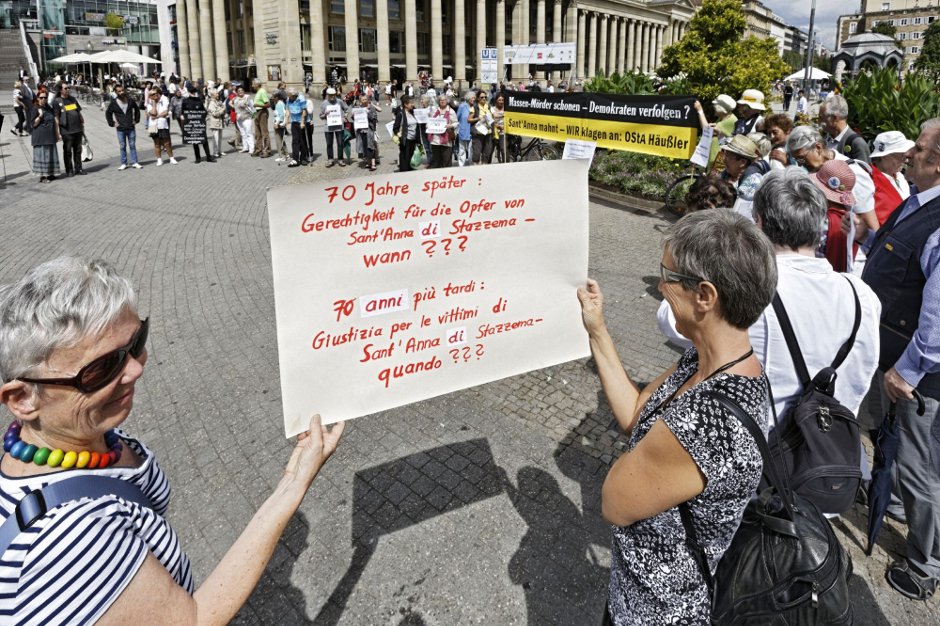 Massen-Mörder schonen - Demokraten verfolgen ?
Sant'Anna mahnt - WIR klagen an: OStA Häußler
70 Jahre später :
Gerechtigkeit für die Opfer von
Sant'Anna di Stazzema –
wann ???
70 anni più tardi :
Giustizia per le vittimi di
Sant'Anna di Stazzema–
quando ???